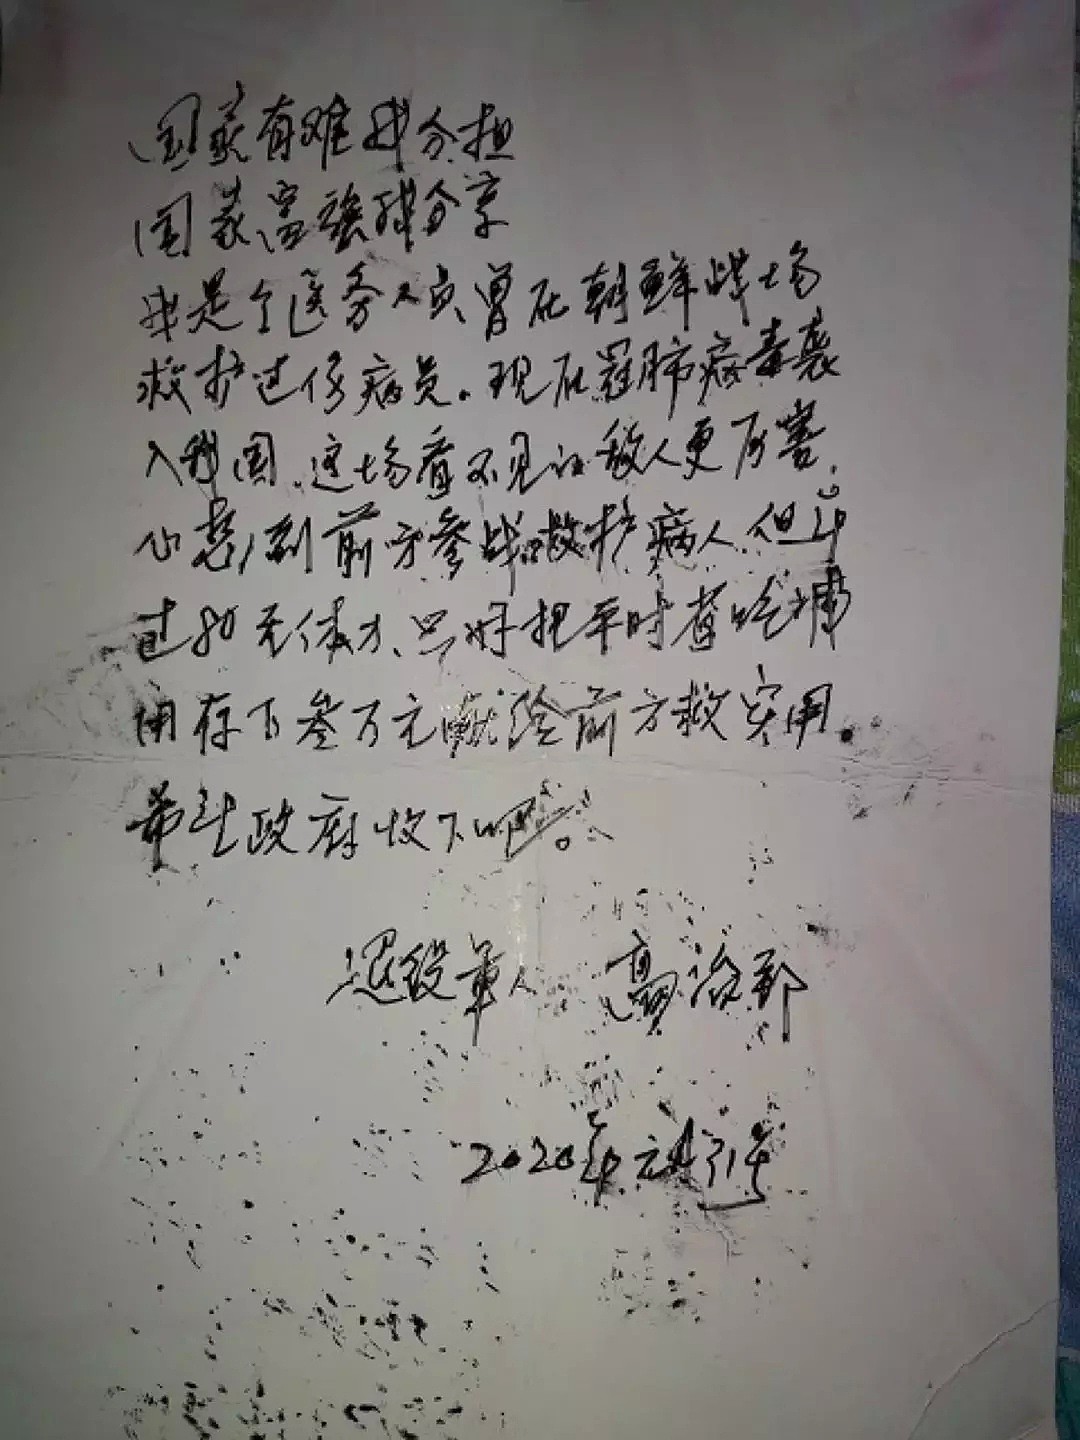 国家有难我分担
国家富强我分享
我是个医务人员曾在朝鲜战场
救护过伤病员。现在冠肺病毒袭
入我国、这场看不见的敌人更厉害、
心想到前方参战救护病人但年
过80无体力、只好把平时省吃
用存下叁万元献给前方救实用。
希望政府收下吧。
退役军人 治郡
2020年元月31号